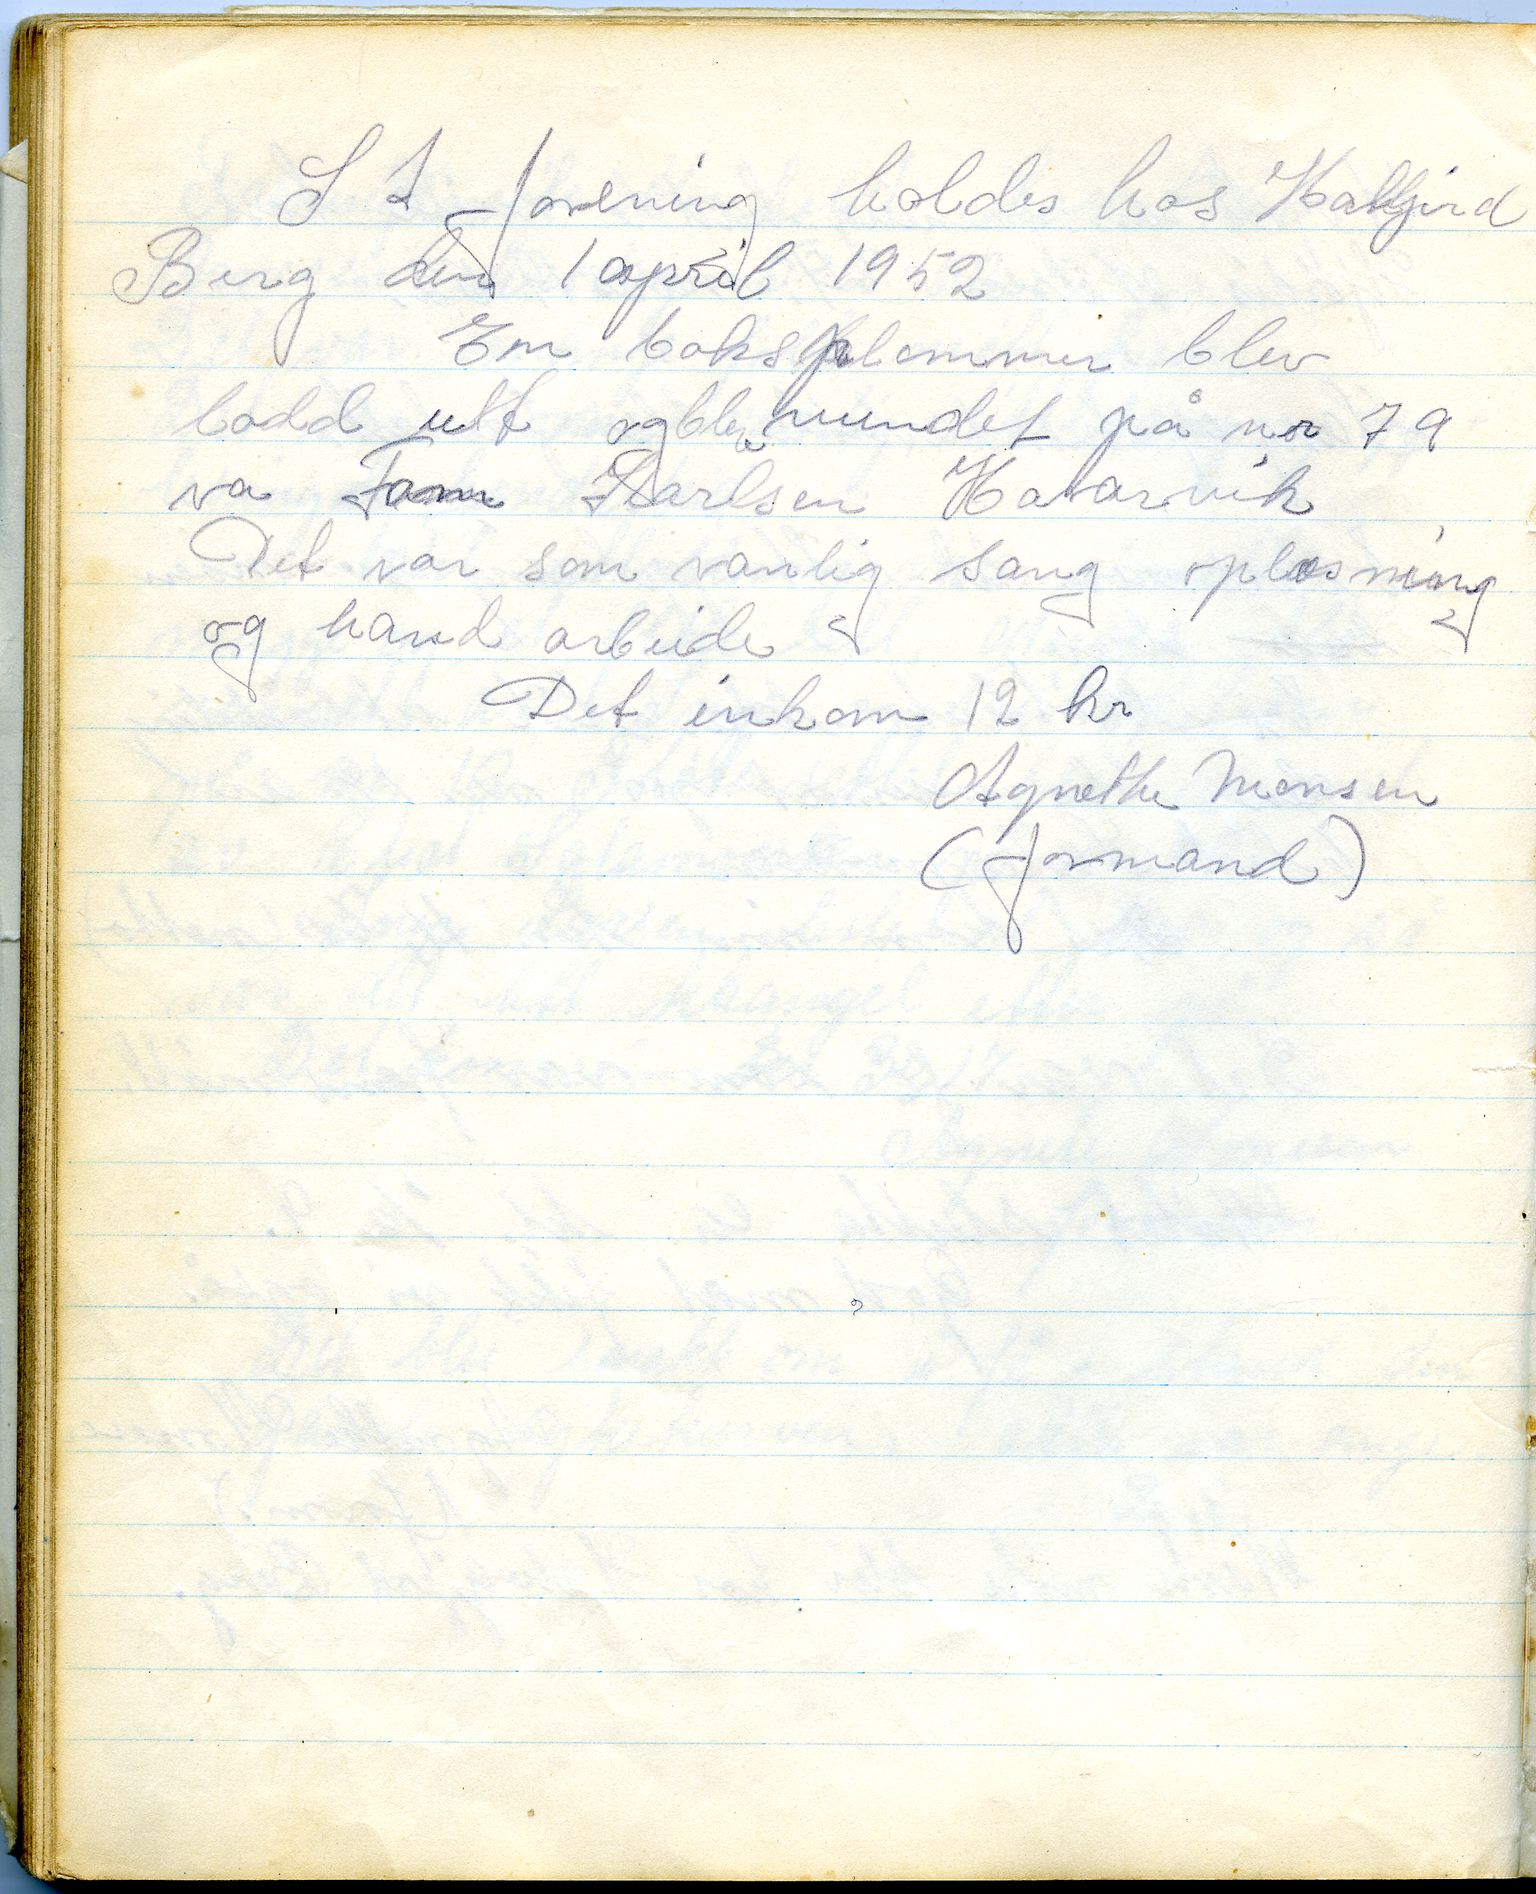 S L forening holdes hos Hallgjerd
Berg den 1 april 1952
En boks plommer blev
lodd utt og blev vundet på nr 79
va Fam Karlsen Havarvik
Det var som vanlig sang oplæsning
og hand arbeide
Det inkom 12 kr
Agnethe Monsen
(formand)